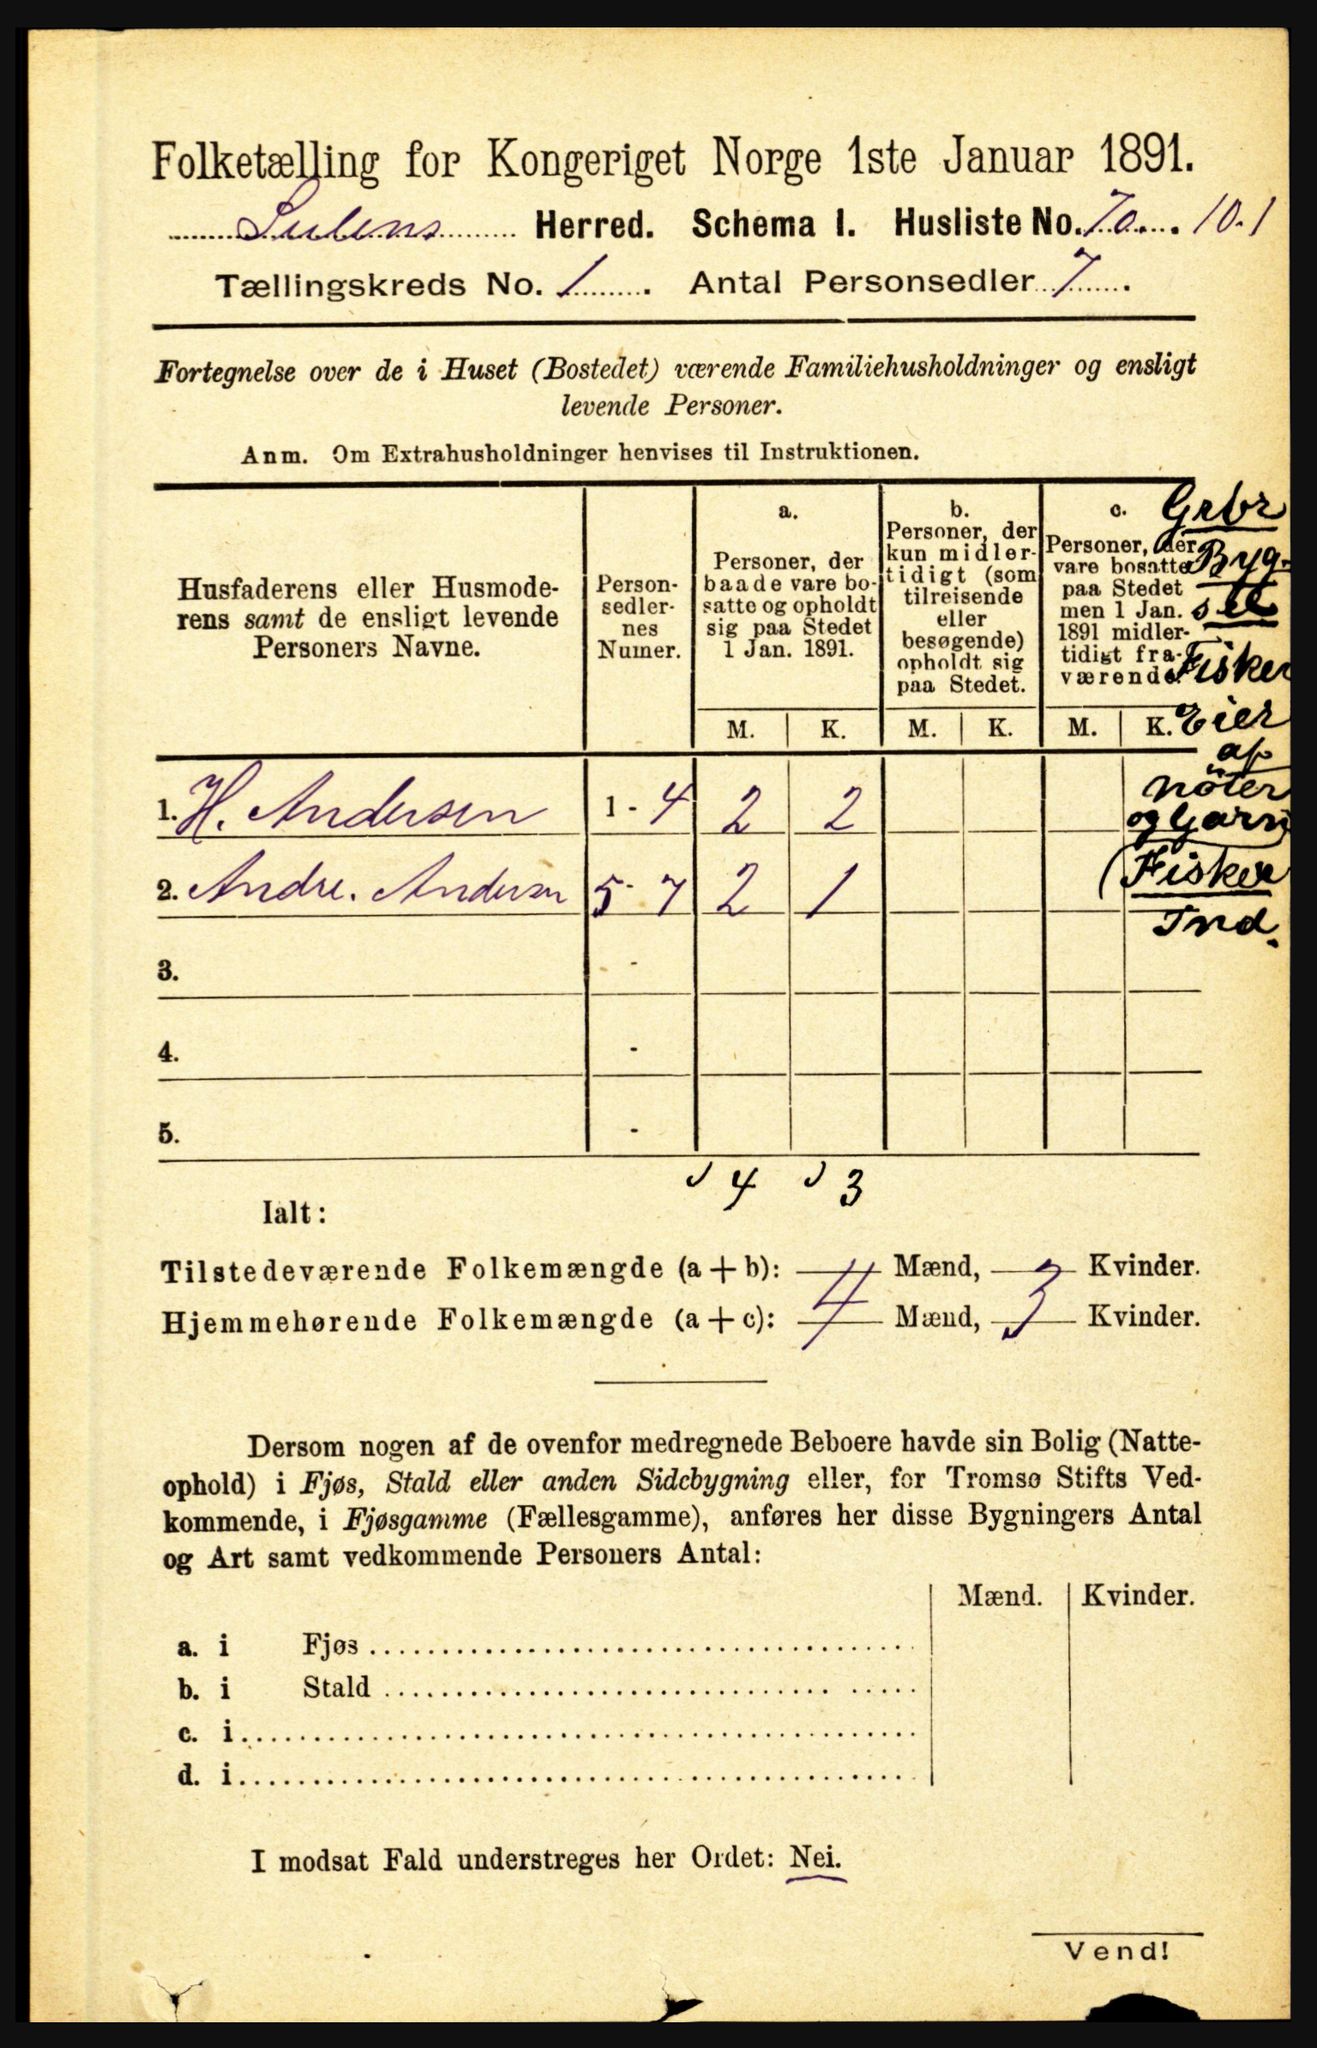 Folketælling for Kongeriget Norge 1ste Januar 1891.
Sulens Herred. Schema I. Husliste No. 70. 10.1
Tællingskreds No. 1. Antal Personsedler 7.
Fortegnelse over de i Huset (Bostedet) værende Familiehusholdninger og ensligt
levende Personer.
Anm. Om Extrahusholdninger henvises til Instruktionen.
Husfaderens eller Husmode-
rens samt de ensligt levende
Personers Navne.
Person-
sedler-
nes
Numer.
a.
Personer, der
baade vare bo-
satte og opholdt
sig paa Stedet
1 Jan. 1891.
b.
Personer, der
kun midler-
tidigt (som
tilreisende
eller
besøgende)
opholdt sig
paa Stedet.
c.
Personer, der
vare bosatte
paa Stedet
men 1 Jan.
1891 midler-
tidigt fra-
værende.
M. K. M. K. M. K.
Grbr
Byg-
sel
Fisker
Eier
af
nöter
og Garn
(Fisker
Ind.
1. H. Andersen 1 - 4 2 2
2. Andre. Andersen 5 - 7 2 1
3. -
4. -
5. -
4 3
Ialt:
Tilstedeværende Folkemængde (a + b): 4 Mænd, 3 Kvinder.
Hjemmehørende Folkemængde (a + c): 4 Mænd, 3 Kvinder.
Dersom nogen af de ovenfor medregnede Beboere havde sin Bolig (Natte-
ophold) i Fjøs, Stald eller anden Sidebygning eller, for Tromsø Stifts Ved-
kommende, i Fjøsgamme (Fællesgamme), anføres her disse Bygningers Antal
og Art samt vedkommende Personers Antal:
Mænd. Kvinder.
a. i Fjøs
b. i Stald
c. i
d. i
I modsat Fald understreges her Ordet: Nei.
Vend!